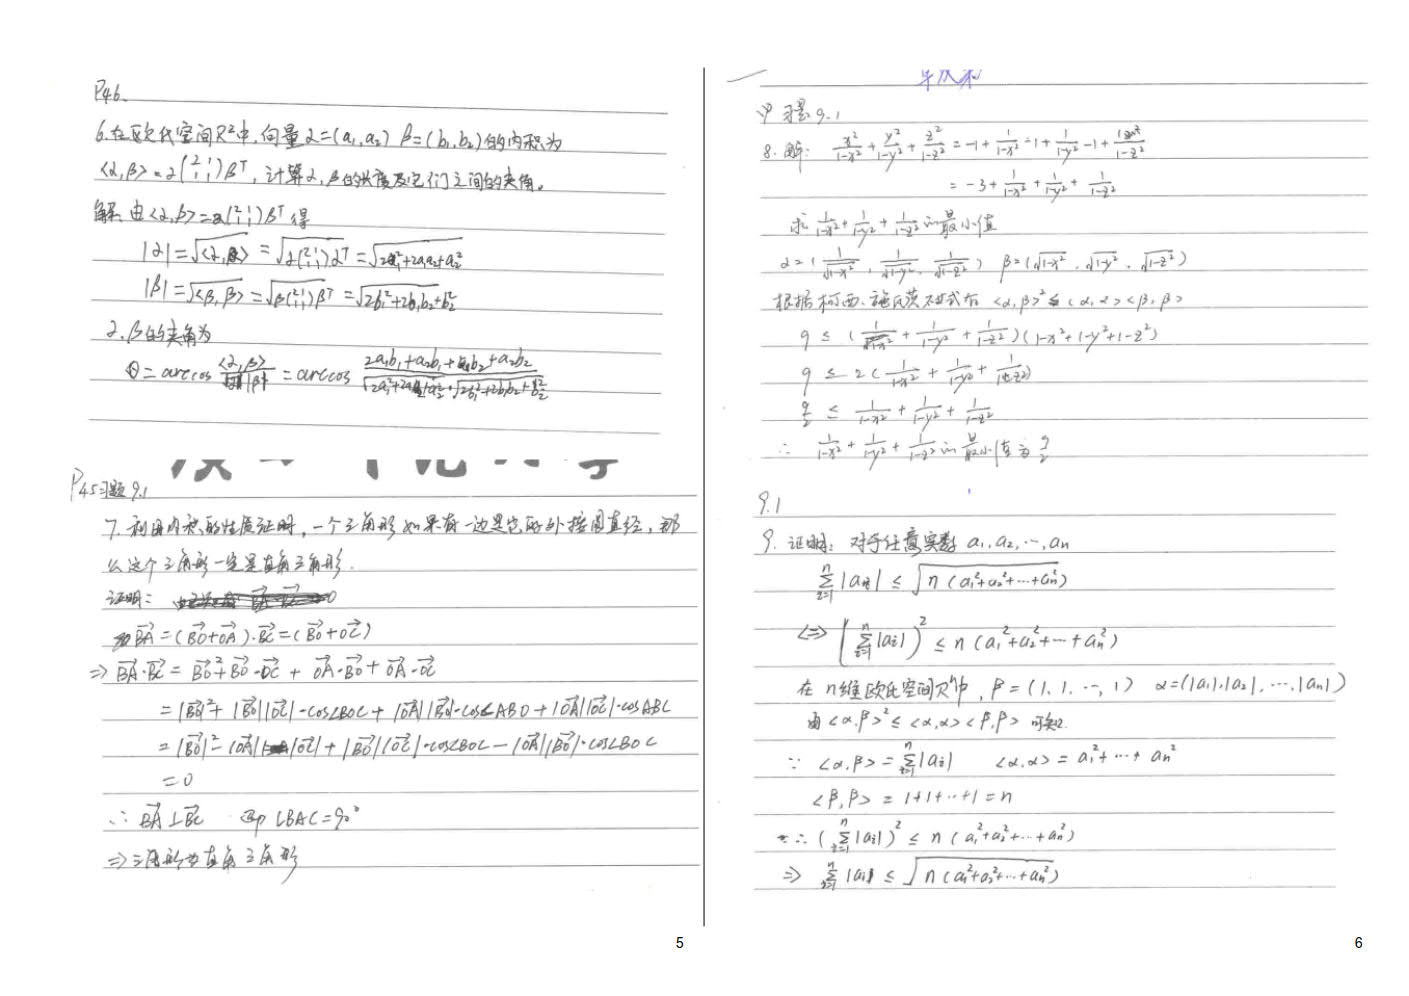 P46、
6.在欧氏空间R²中,向量α=(a₁,a₂) β=(b₁,b₂)的内积为
<α,β>=α(2 1; 1 1)βᵀ,计算α,β的长度及它们之间的夹角。
解:由<α,β>=α(2 1; 1 1)βᵀ得
|α|=√<α,α> = √α(2 1; 1 1)αᵀ = √2a₁²+2a₁a₂+a₂²
|β|=√<β,β> = √β(2 1; 1 1)βᵀ = √2b₁²+2b₁b₂+b₂²
α.β的夹角为
θ=arccos <α,β>/|α||β| = arccos (2a₁b₁+a₂b₁+a₁b₂+a₂b₂)/(√2a₁²+2a₁a₂+a₂²·√2b₁²+2b₁b₂+b₂²)
P45习题9.1
7.利用内积的性质证明,一个三角形如果有一边是它的外接圆直径,那
么这个三角形一定是直角三角形.
证明:
BA=(BO+OA)·BC=(BO+OC)
⇒BA·BC = BO²+BO·OC + OA·BO+OA·OC
=|BO|²+|BO||OC|·cos∠BOC+|OA||BO|·cos∠ABO+|OA||OC|·cosABC
=|BO|²-|OA||OC|+|BO||OC|·cos∠BOC-|OA||BO|·cos∠BOC
=0
∴BA⊥BC 即∠BAC=90°
⇒三角形为直角三角形
5
习题9.1
8.解: x²/(1-x²)+y²/(1-y²)+z²/(1-z²)=-1+1/(1-x²)-1+1/(1-y²)-1+1/(1-z²)
=-3+1/(1-x²)+1/(1-y²)+1/(1-z²)
求1/(1-x²)+1/(1-y²)+1/(1-z²)的最小值
α=(1/√1-x², 1/√1-y², 1/√1-z²) β=(√1-x², √1-y², √1-z²)
根据柯西.施瓦茨不等式有 <α,β>²≤<α,α><β,β>
9≤(1/(1-x²)+1/(1-y²)+1/(1-z²))(1-x²+1-y²+1-z²)
9≤2(1/(1-x²)+1/(1-y²)+1/(1-z²))
9/2≤1/(1-x²)+1/(1-y²)+1/(1-z²)
∴1/(1-x²)+1/(1-y²)+1/(1-z²)的最小值为9/2
9.1
9.证明:对于任意实数a₁,a₂,…,aₙ
∑|aᵢ|≤√n(a₁²+a₂²+…+aₙ²)
<=>(∑|aᵢ|)²≤n(a₁²+a₂²+…+aₙ²)
在n维欧氏空间Rⁿ中,β=(1,1,…,1) α=(|a₁|,|a₂|,…,|aₙ|)
由<α,β>²≤<α,α><β,β>可知
∵<α,β>=∑|aᵢ| <α,α>=a₁²+…+aₙ²
<β,β>=1+1+…+1=n
∴(∑|aᵢ|)²≤n(a₁²+a₂²+…+aₙ²)
⇒∑|aᵢ|≤√n(a₁²+a₂²+…+aₙ²)
6